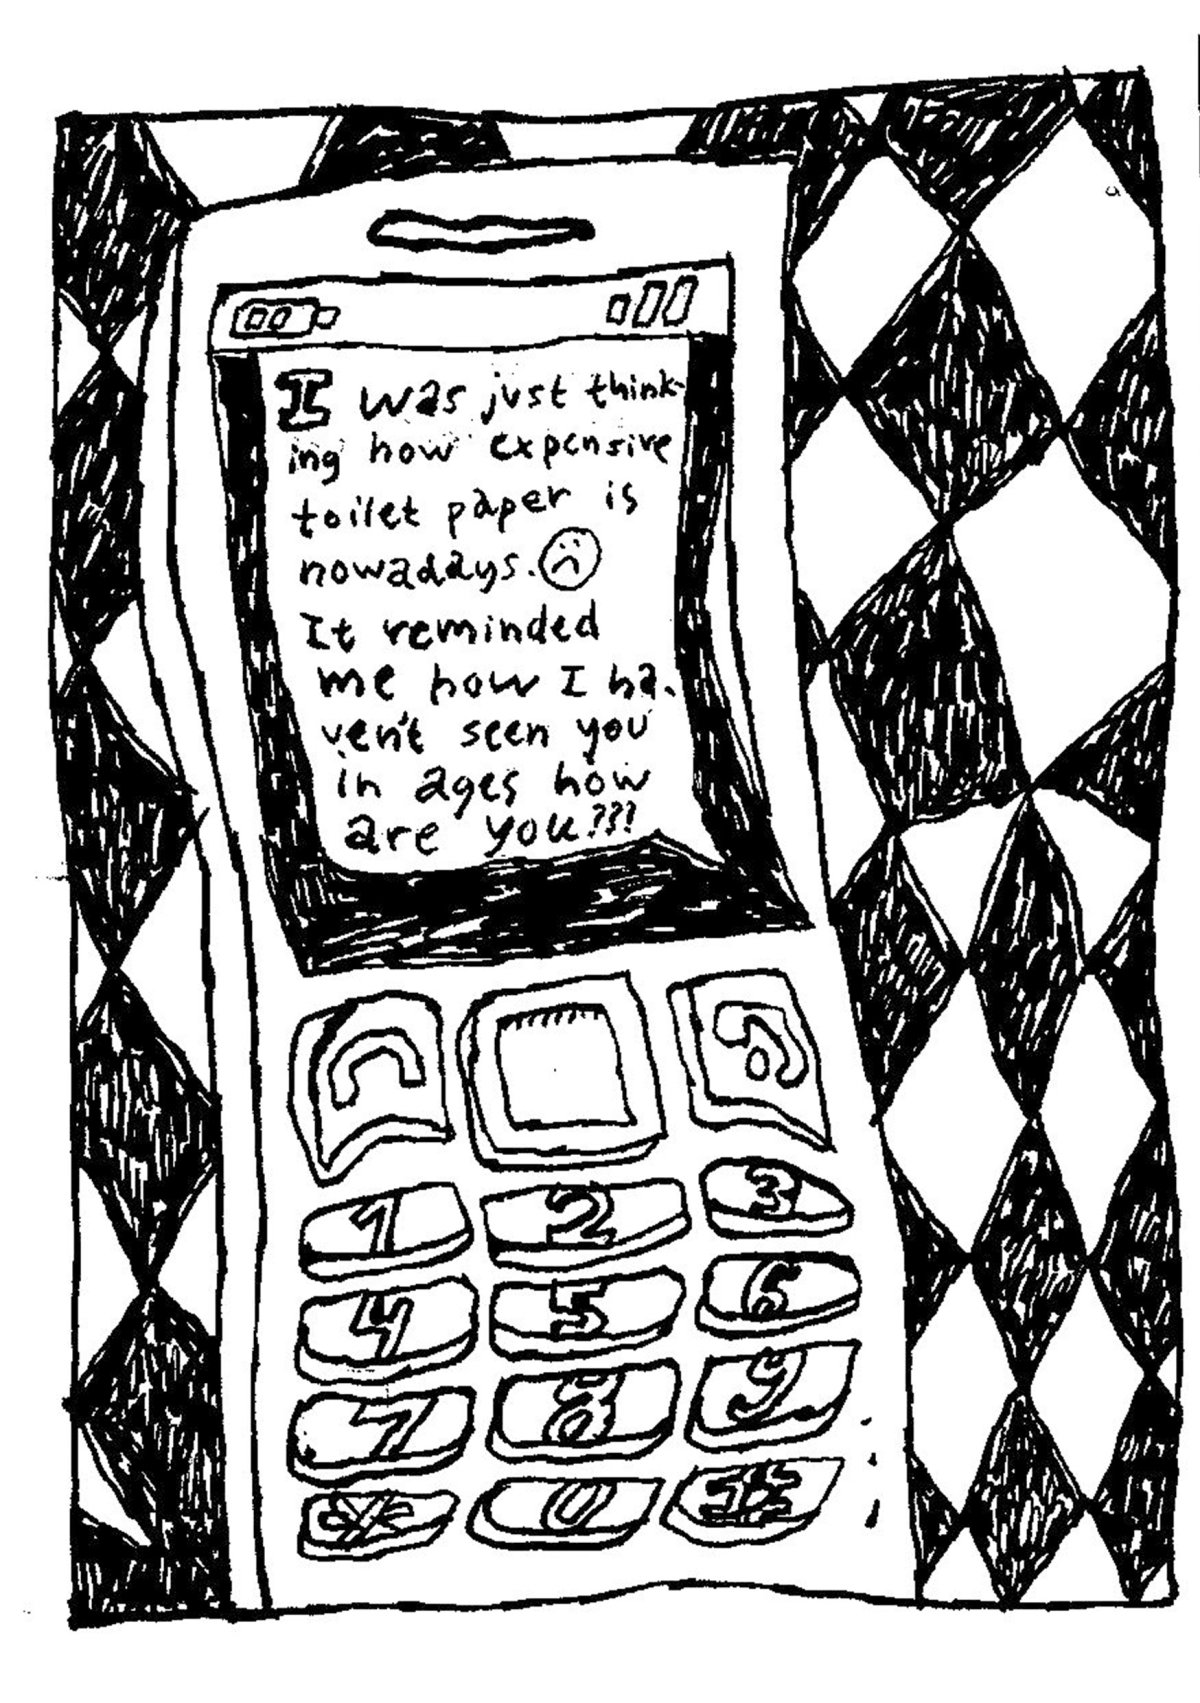 I was just think-
ing how expensive
toilet paper is
nowadays. ☹
It reminded
me how I ha-
ven't seen you
in ages how
are you???
1 2 3
4 5 6
7 8 9
* 0 #